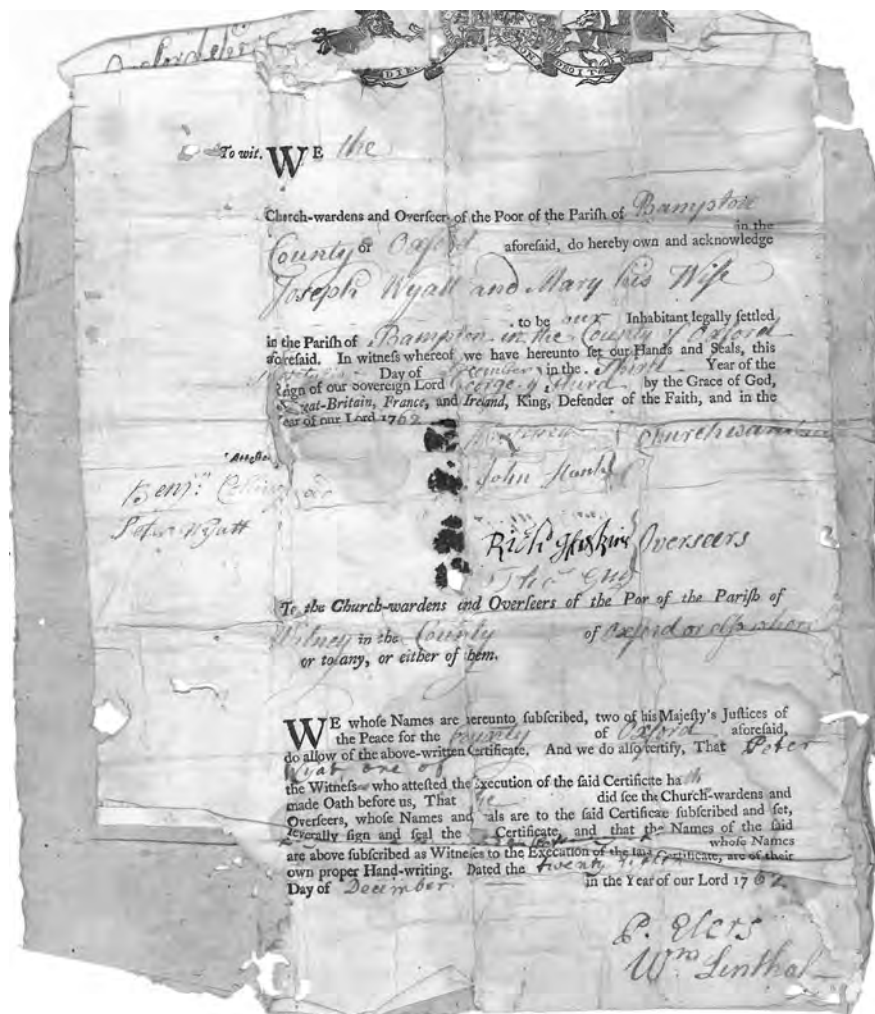 Oxfordshire
DIEU ON DROIT
To wit. WE the
Church-wardens and Overseers of the Poor of the Pariſh of Bampton
in the
County of Oxford aforeſaid, do hereby own and acknowledge
Joseph Wyatt and Mary his Wife
to be our Inhabitant legally ſettled
in the Pariſh of Bampton in the County of Oxford
aforeſaid. In witneſs whereof we have hereunto ſet our Hands and Seals, this
Day of December in the Third Year of the
Reign of our ſovereign Lord George ye Third by the Grace of God,
Great-Britain, France, and Ireland, King, Defender of the Faith, and in the
Year of our Lord 1762
Churchwardens
Atteſted
John Hanks
Benjn. Collingwood
Peter Wyatt
Richd Gaskins Overseers
Thos Guy
To the Church-wardens and Overſeers of the Por of the Pariſh of
Witney in the County of Oxford or elsewhere
or to any, or either of them.
WE whoſe Names are hereunto ſubſcribed, two of his Majeſty's Juſtices of
the Peace for the County of Oxford aforeſaid,
do allow of the above-written Certificate. And we do alſo certify, That Peter
Wyat one of
the Witneſs who atteſted the Execution of the ſaid Certificate hath
made Oath before us, That he did ſee the Church-wardens and
Overſeers, whoſe Names and Seals are to the ſaid Certificate ſubſcribed and ſet,
ſeverally ſign and ſeal the Certificate, and that the Names of the ſaid
whoſe Names
are above ſubſcribed as Witneſſes to the Execution of the ſaid Certificate, are of their
own proper Hand-writing. Dated the twenty
Day of December in the Year of our Lord 1762
P. Elers
Wm Lenthal